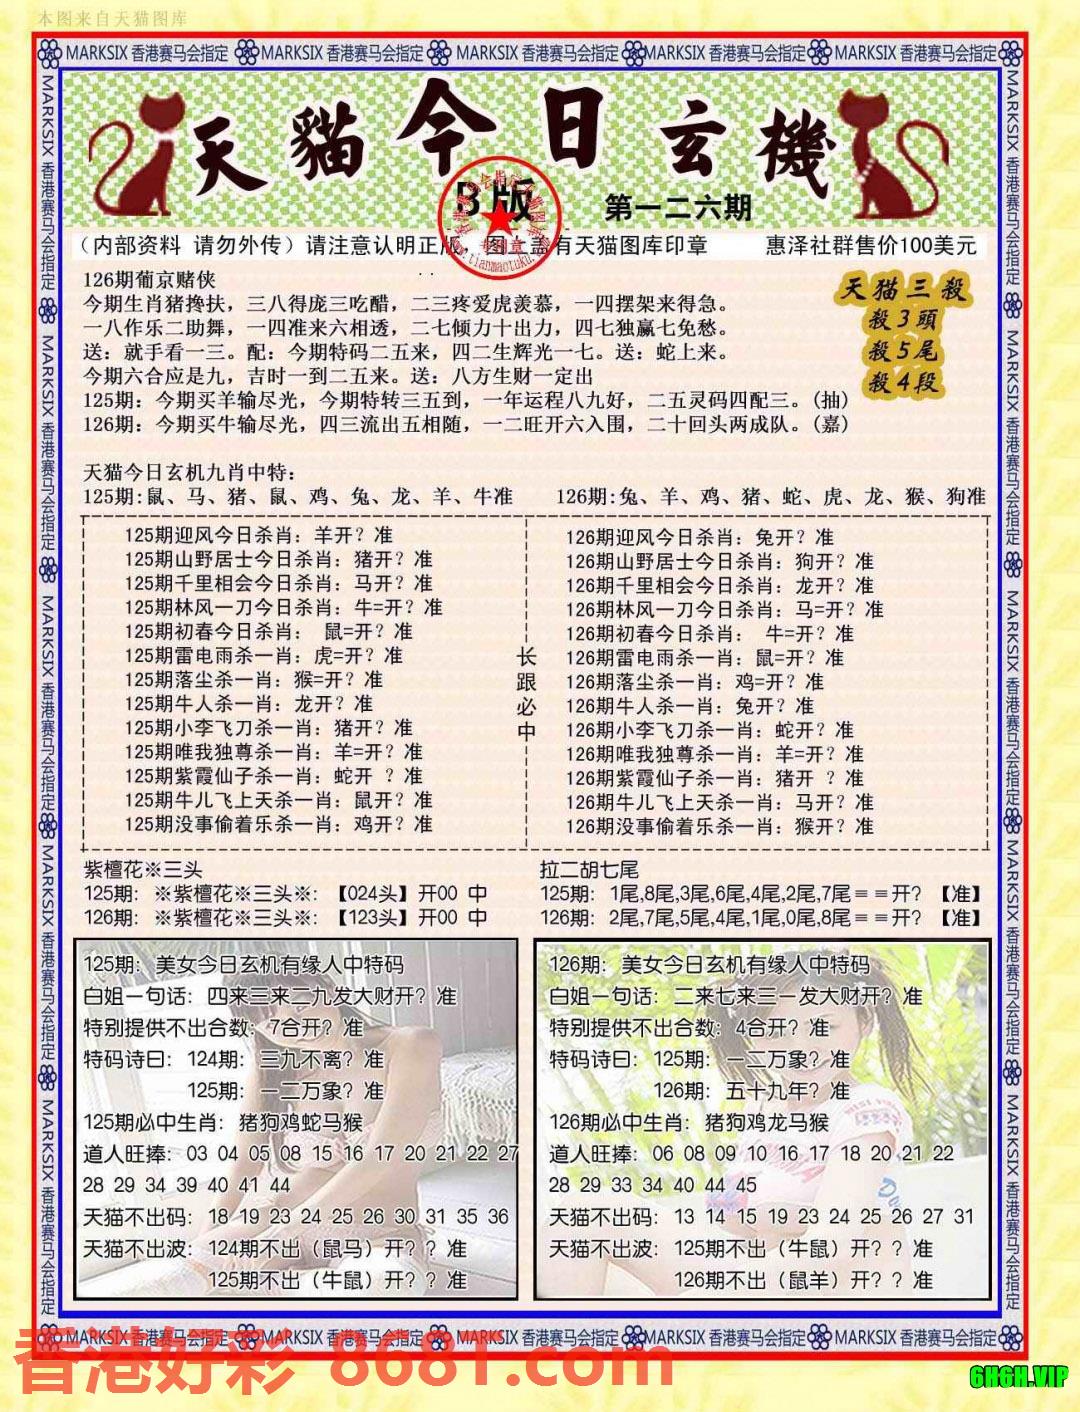 本图来自天猫图库
MARKSIX 香港赛马会指定 MARKSIX 香港赛马会指定 MARKSIX 香港赛马会指定 MARKSIX 香港赛马会指定 MARKSIX 香港赛马会指定
天猫今日玄機
B版
第一二六期
(内部资料 请勿外传)请注意认明正版,图上盖有天猫图库印章 惠泽社群售价100美元
www.tianmaotuku.com
126期葡京赌侠
今期生肖猪搀扶，三八得庞三吃醋，二三疼爱虎羡慕，一四摆架来得急。
一八作乐二助舞，一四准来六相透，二七倾力十出力，四七独赢七免愁。
送：就手看一三。配：今期特码二五来，四二生辉光一七。送：蛇上来。
今期六合应是九，吉时一到二五来。送：八方生财一定出
125期：今期买羊输尽光，今期特转三五到，一年运程八九好，二五灵码四配三。(抽)
126期：今期买牛输尽光，四三流出五相随，一二旺开六入围，二十回头两成队。(嘉)
天猫三殺
殺3頭
殺5尾
殺4段
天猫今日玄机九肖中特：
125期:鼠、马、猪、鼠、鸡、兔、龙、羊、牛准
126期:兔、羊、鸡、猪、蛇、虎、龙、猴、狗准
125期迎风今日杀肖：羊开？准
125期山野居士今日杀肖：猪开？准
125期千里相会今日杀肖：马开？准
125期林风一刀今日杀肖：牛=开？准
125期初春今日杀肖： 鼠=开？准
125期雷电雨杀一肖：虎=开？准
125期落尘杀一肖：猴=开？准
125期牛人杀一肖：龙开？准
125期小李飞刀杀一肖：猪开？准
125期唯我独尊杀一肖：羊=开？准
125期紫霞仙子杀一肖：蛇开 ？准
125期牛儿飞上天杀一肖：鼠开？准
125期没事偷着乐杀一肖：鸡开？准
长跟必中
126期迎风今日杀肖：兔开？准
126期山野居士今日杀肖：狗开？准
126期千里相会今日杀肖：龙开？准
126期林风一刀今日杀肖：马=开？准
126期初春今日杀肖： 牛=开？准
126期雷电雨杀一肖：鼠=开？准
126期落尘杀一肖：鸡=开？准
126期牛人杀一肖：兔开？准
126期小李飞刀杀一肖：蛇开？准
126期唯我独尊杀一肖：羊=开？准
126期紫霞仙子杀一肖：猪开 ？准
126期牛儿飞上天杀一肖：马开？准
126期没事偷着乐杀一肖：猴开？准
紫檀花※三头
125期：※紫檀花※三头※：【024头】开00 中
126期：※紫檀花※三头※：【123头】开00 中
拉二胡七尾
125期：1尾,8尾,3尾,6尾,4尾,2尾,7尾==开？【准】
126期：2尾,7尾,5尾,4尾,1尾,0尾,8尾==开？【准】
125期：美女今日玄机有缘人中特码
白姐一句话：四来三来二九发大财开？准
特别提供不出合数：7合开？准
特码诗曰：124期：三九不离？准
125期：一二万象？准
125期必中生肖：猪狗鸡蛇马猴
道人旺捧：03 04 05 08 15 16 17 20 21 22 27
28 29 34 39 40 41 44
天猫不出码：18 19 23 24 25 26 30 31 35 36
天猫不出波：124期不出（鼠马）开？？准
125期不出（牛鼠）开？？准
126期：美女今日玄机有缘人中特码
白姐一句话：二来七来三一发大财开？准
特别提供不出合数：4合开？准
特码诗曰：125期：一二万象？准
126期：五十九年？准
126期必中生肖：猪狗鸡龙马猴
道人旺捧：06 08 09 10 16 17 18 20 21 22
28 29 33 34 40 44 45
天猫不出码：13 14 15 19 23 24 25 26 27 31
天猫不出波：125期不出（牛鼠）开？？准
126期不出（鼠羊）开？？准
MARKSIX 香港赛马会指定 MARKSIX 香港赛马会指定 MARKSIX 香港赛马会指定 MARKSIX 香港赛马会指定 MARKSIX 香港赛马会指定
香港好彩 8681.com
6HGH.VIP